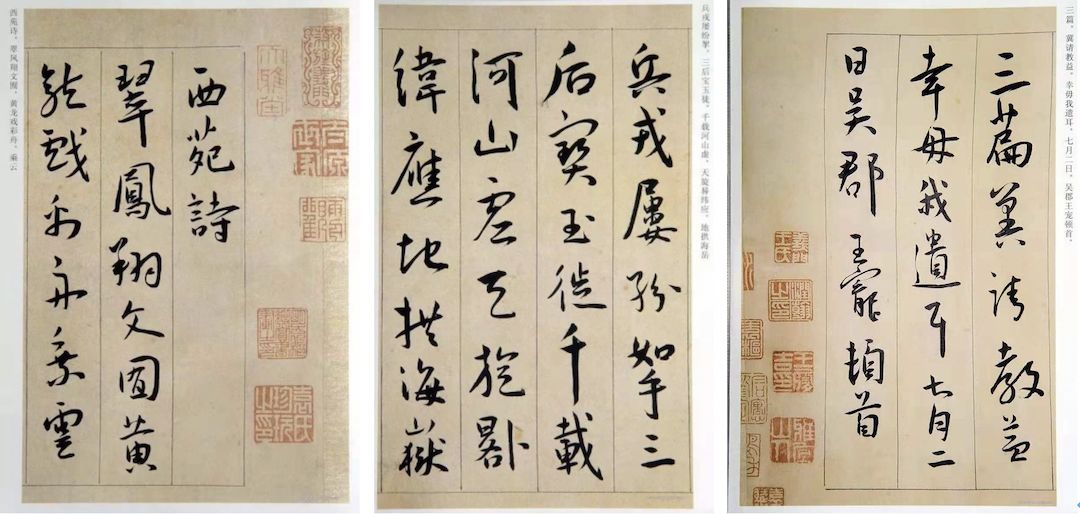 西苑詩
翠鳳翔文囿黃
龍戲彩舟乘雲
西苑诗。翠凤翔文囿,黄龙戏彩舟。乘云
兵戎屢紛挐三
后寶玉徙千載
河山虛天旋晷
緯應地拱海嶽
兵戎屡纷挐,三后宝玉徙。千载河山虚,天旋晷纬应,地拱海岳
三篇冀請教益
幸毋我遺耳七月二
日吳郡王寵頓首
三篇,冀请教益。幸毋我遗耳。七月二日,吴郡王宠顿首。